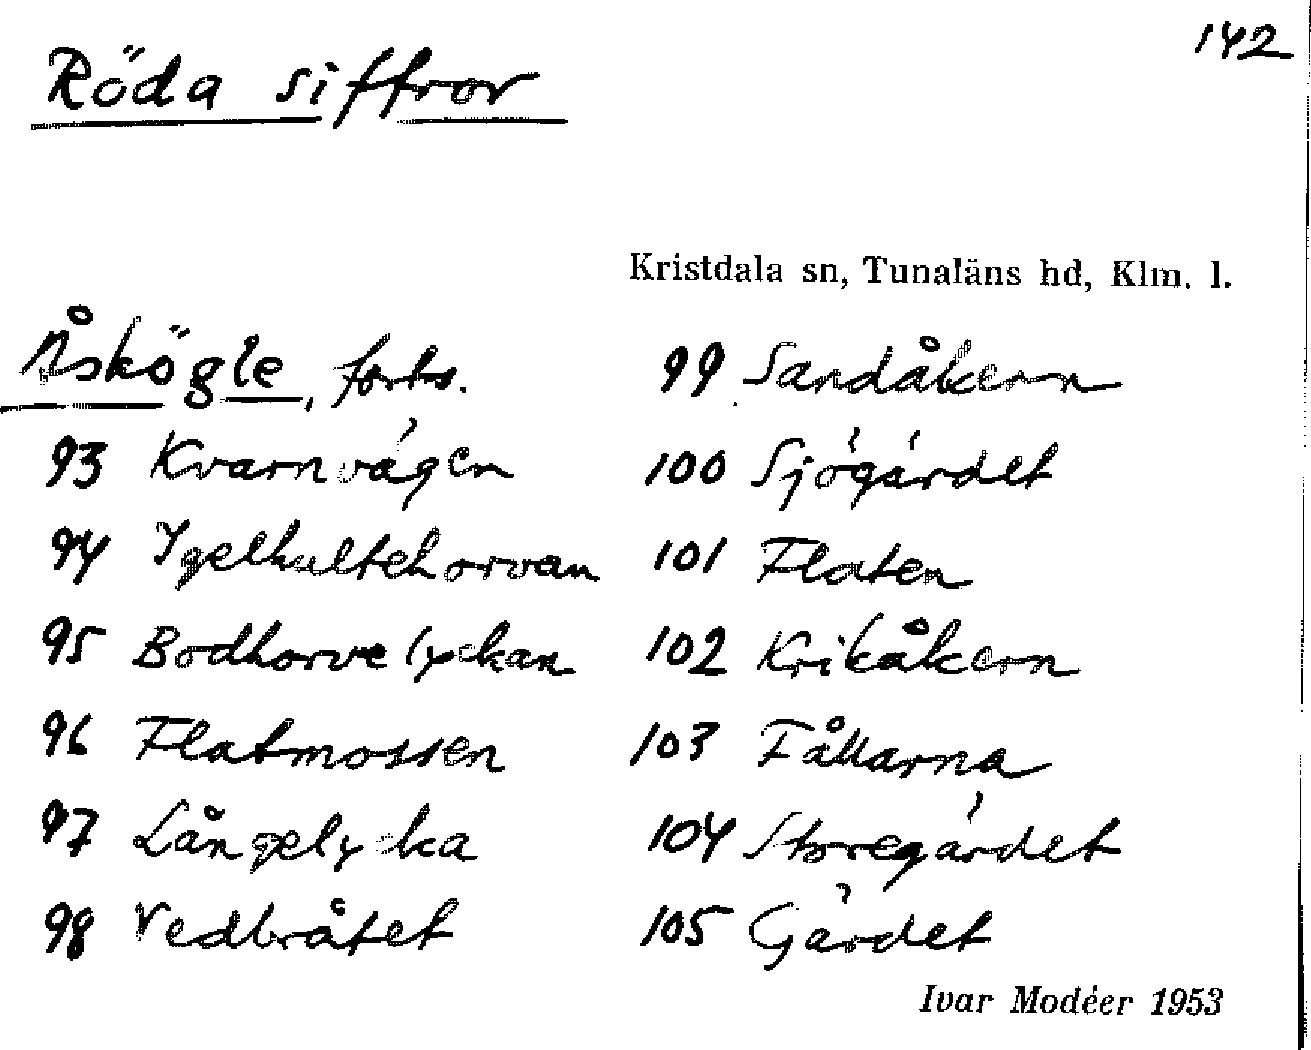 142
Röda siffror
Kristdala sn, Tunaläns hd, Klm. l.
Åskögle, forts.
93 Kvarnvägen
94 Igelhultehorvan
95 Bodhorvelyckan
96 Flatmossen
97 Långelycka
98 Vedbråtet
99 Sandåkern
100 Sjögärdet
101 Flaten
102 Krikåkern
103 Fållarna
104 Storegärdet
105 Gärdet
Ivar Modéer 1953